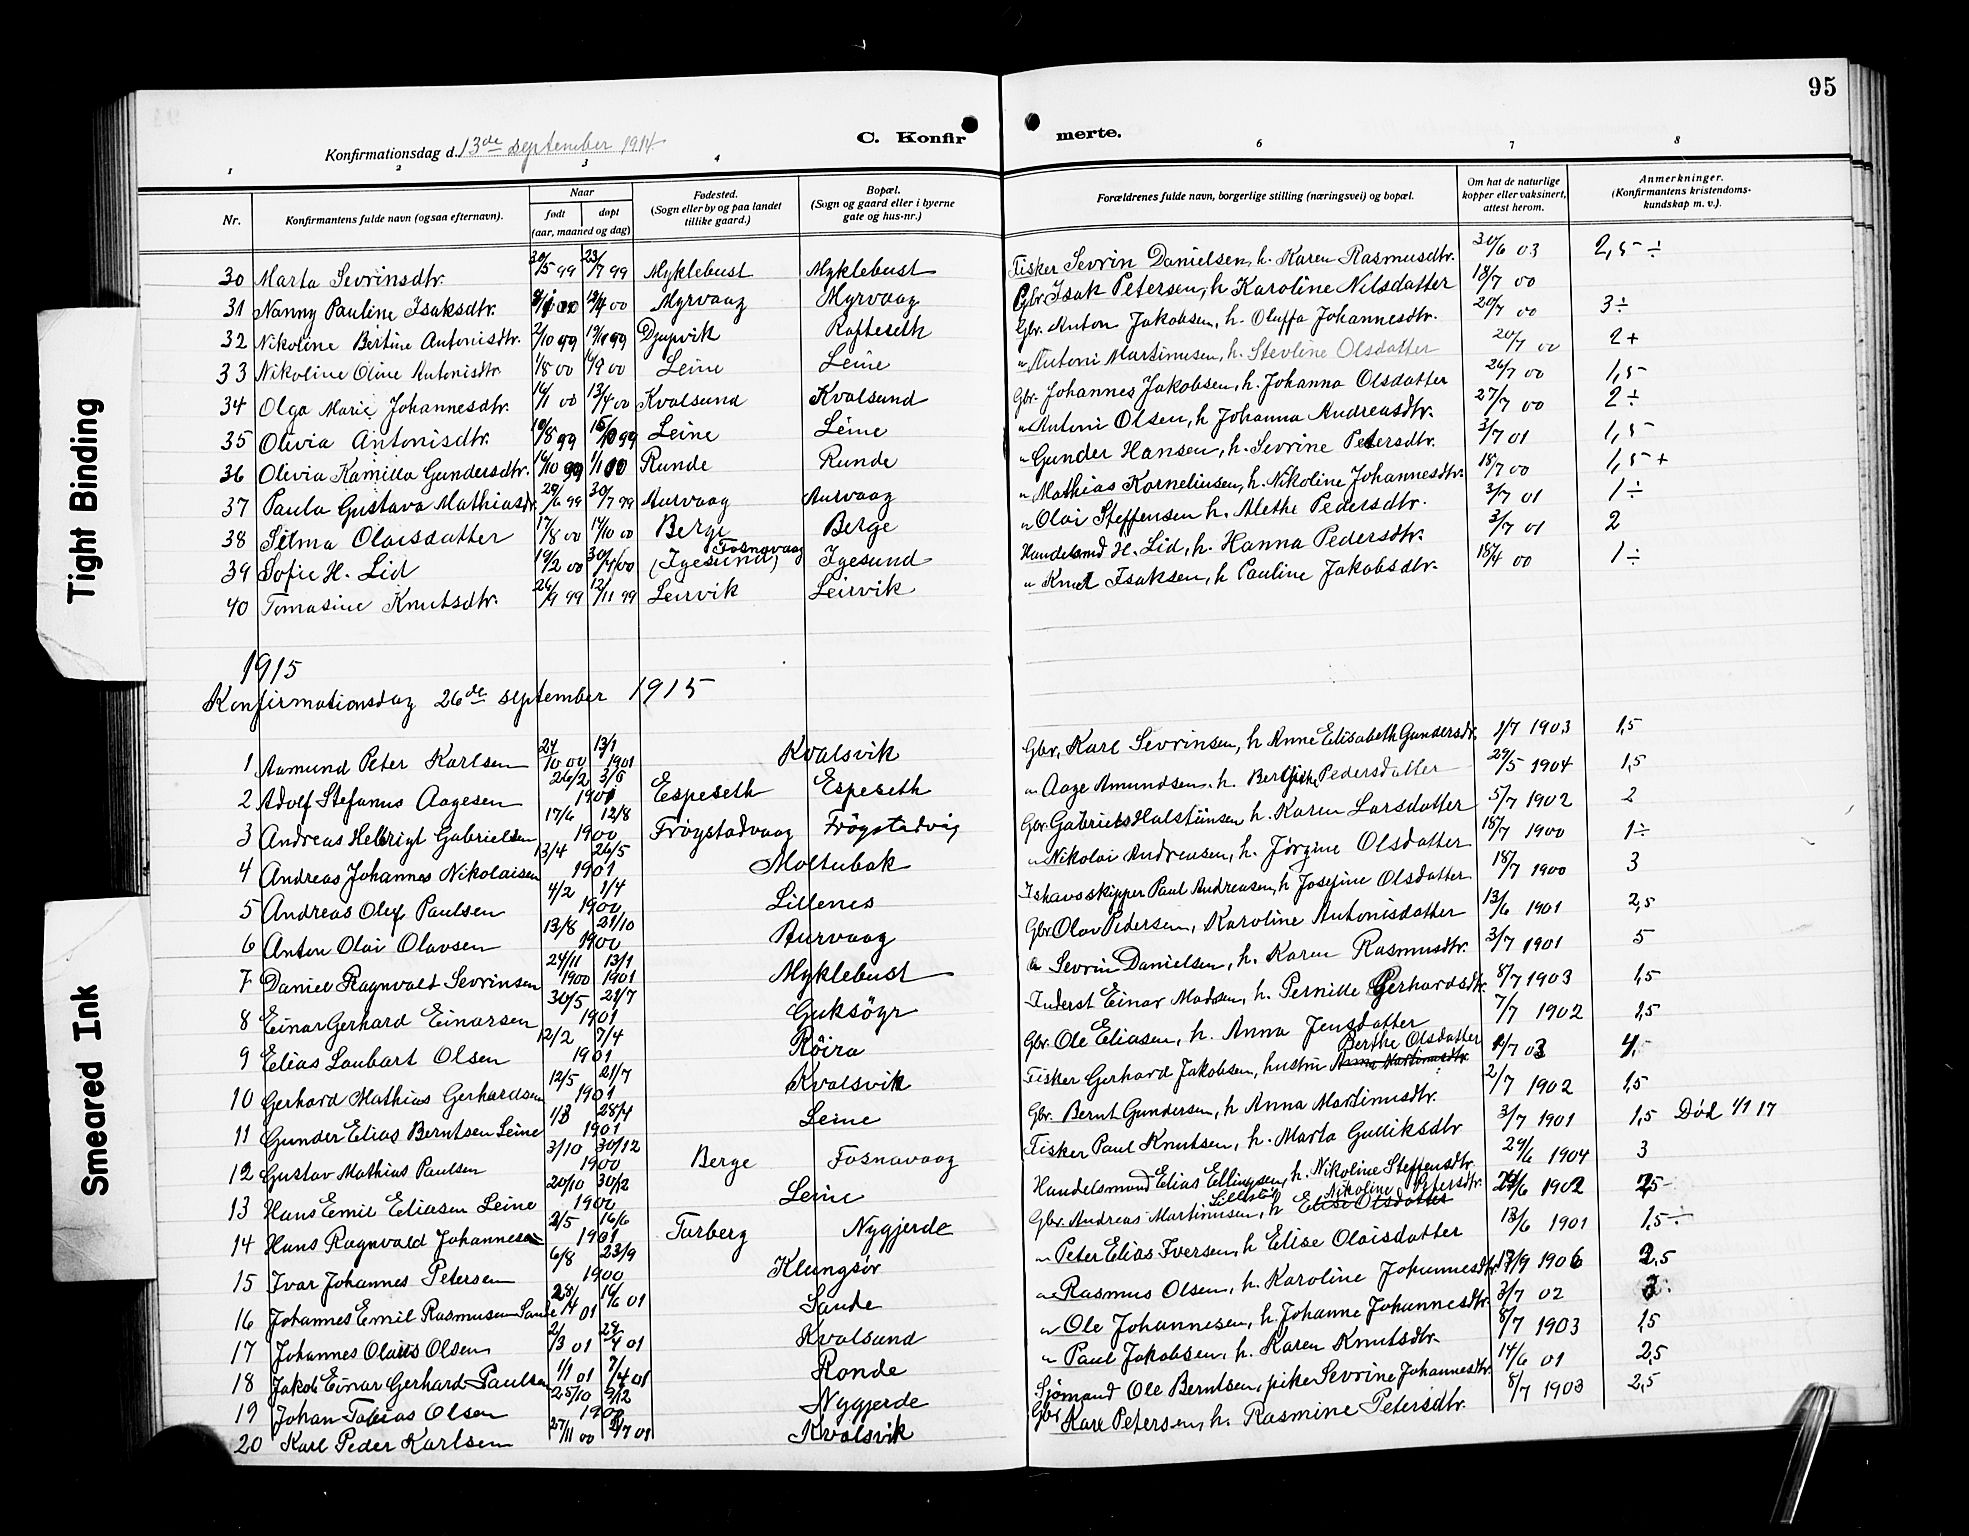 95
C. Konfir merte.
Konfirmationsdag d. 13de september 1914
1 2 3 4 6 7 8
Nr. Konfirmantens fulde navn (ogsaa efternavn). Naar født døpt (aar, maaned og dag) Fødested. (Sogn eller by og paa landet tillike gaard.) Bopæl. (Sogn og gaard eller i byerne gate og hus-nr.) Forældrenes fulde navn, borgerlige stilling (næringsvei) og bopæl. Om hat de naturlige kopper eller vaksinert, attest herom. Anmerkninger. (Konfirmantens kristendomskundskap m. v.).
30 Marta Sevrinsdtr. 30/5 99 23/7 99 Myklebust Myklebust Fisker Sevrin Danielsen, h. Karen Rasmusdtr. 30/6 03 2,5 ÷
31 Nanny Pauline Isaksdtr. 00 00 Myrvaag Myrvaag Gbr. Isak Petersen, h Karoline Nilsdatter 18/7 00
32 Nikoline Bertine Antonisdtr. 2/10 99 19/11 99 Djupvik Rafteseth Gbr. Anton Jakobsen, h. Oluffa Johannesdtr. 20/7 00 3 ÷
33 Nikoline Oline Antonisdtr. 1/8 00 00 Leine Leine " Antoni Martinusen, h. Stevline Olsdatter 20/7 00 2 +
34 Olga Marie Johannesdtr. 16/1 00 13/4 00 Kvalsund Kvalsund Gbr. Johannes Jakobsen, h. Johanna Olsdatter 26/7 00 1,5
35 Olivia Antonisdtr. 19/8 99 15/10 99 Leine Leine " Antoni Olsen, h Johanna Andreasdtr. 27/7 00 2 ÷
36 Olivia Kamilla Gundersdtr. 99 00 Runde Runde " Gunder Hansen, h. Sevrine Petersdtr. 3/7 01 1,5
37 Paula Gustava Mathiasdtr. 29/6 99 30/7 99 Aurvaag Aurvaag " Mathias Kornelius en, h. Nikoline Johannesdtr. 18/7 00 1,5 +
38 Selma Olaisdatter 17/8 00 14/10 00 Berge Berge " Olai Steffensen h. Alethe Pedersdtr. 3/7 01 1 ÷
39 Sofie H. Lid 19/2 00 30/4 00 (Igesund) Fosnavaag Igesund Handelsmd H. Lid, h. Hanna Pedersdtr. 3/7 01 2
40 Tomasine Knutsdtr. 26/9 99 12/11 99 Leirvik Leirvik " Knut Isaksen, h Pauline Jakobsdtr. 18/4 00 1 ÷
1915
Konfirmationsdag 26de september 1915
1 Aamund Peter Karlsen 24/10 00 13/1 1901 Kvalsvik Gbr. Karl Sevrinsen, h Anne Elisabeth Gundersdr. 1/7 1903 1,5
2 Adolf Stefanus Aagesen 26/2 3/6 1901 Espeseth Espeseth " Aage Amundsen, h. Pedersdatter 29/5 1904 1,5
3 Andreas Helbrigt Gabrielsen 17/6 12/8 1900 Frøystadvaag Frøystadvåg Gbr. Gabriel Halsteinsen h. Karen Larsdatter 5/7 1902 2
4 Andreas Johannes Nikolaisen 13/4 26/5 1901 Moltubak " Nikolai Andreasen, h. Jørgine Olsdatter 18/7 1900 1 ÷
5 Andreas Olef Paulsen 4/2 1/4 1900 Lillenes Ishavsskipper Paul Andreasen, h Josefine Olsdatter 18/7 1900 3
6 Anton Olai Olavsen 13/8 21/10 1900 Aurvaag Gbr Olav Pedersen, Karoline Antonisdatter 13/6 1901 2,5
7 Daniel Ragnvald Sevrinsen 24/11 1900 13/1 1901 Myklebust Sevrin Danielsen, h. Karen Rasmusdtr. 3/7 1901 5
8 Einar Gerhard Einarsen 30/5 21/7 1901 Goksöyr Inderst Einar Madsen, h. Pernille Gerhardsdtr. 8/7 1903 1,5
9 Elias Laubart Olsen 12/2 7/4 1901 Røira Gbr. Ole Eliasen, h. Anna Jensdatter 7/7 1902 1,5
10 Gerhard Mathias Gerhardsen 12/5 21/7 1901 Kvalsvik Fisker Gerhard Jakobsen, hustru Anna Martinusdtr. Berthe Olsdatter 03
11 Gunder Elias Berntsen Leine 28/4 1901 Leine Gbr. Bernt Gundersen, h Anna Martinusdtr. 2/7 1902 1,5
12 Gustav Mathias Paulsen 3/10 30/12 1900 Berge Fosnavaag Fisker Paul Knutsen, h. Marta Gulliksdtr 3/7 1901 1,5 Død 4/1 17
13 Hans Emil Eliasen Leine 20/10 30/12 1900 Leine Handelsmand Elias Ellingsen, h. Nikoline Steffensdtr. 29/6 1904 3
14 Hans Ragnvald Johannesen 2/5 16/6 1901 Tarberg Nygjerde Gbr. Andreas Martinusen, h Elise Olsdatter Nikoline Petersdtr. 1902
15 Ivar Johannes Petersen 6/8 23/9 1900 Klungsør " Peter Elias Iversen, h Elise Olaisdatter 13/6 1901 1,5 ÷
16 Johannes Emil Rasmusen Sande 28/4 01 16/6 01 Sande " Rasmus Olsen, h. Karoline Johannesdtr. 17/9 1906 2,5
17 Johannes Olaus Olsen 2/3 01 28/4 01 Kvalsund " Ole Johannesen, h. Johanne Johannesdtr. 3/7 02
18 Jakob Einar Gerhard Paulsen 1/1 01 7/4 01 Ronde " Paul Jakobsen, h. Karen Knutsdtr. 8/7 1903 1,5
19 Johan Tobias Olsen 25/10 9/12 1900 Nygjerde Sjømand Ole Berntsen, pike Sevrine Johannesdtr. 14/6 01 2,5
20 Karl Peder Karlsen 27/11 00 01 Kvalsvik Gbr Karl Petersen, h. Rasmine Petersdtr. 8/7 1903 2,5
Tight Binding
Smeared Ink